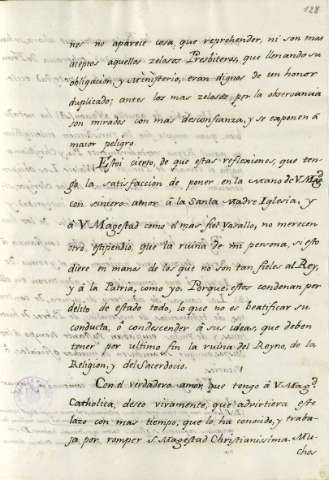 128
nes no aparece cosa que reprehender, ni son mas
ineptos aquellos zelosos Presbiteros, que llenando su
obligacion, y Ministerio, eran dignos de un honor
duplicado; antes los mas zelosos por la observancia
son mirados con mas desconfianza, y se exponen à
maior peligro.
Estoi cierto, de que estas reflexiones, que ten-
go la satisfaccion de poner en la mano de V. Magd
con sincero amor à la Santa Madre Iglesia, y
à V. Magestad como el mas fiel Vasallo, no merecen
otro estipendio, que la ruina de mi persona, si esto
diere en manos de los que no son tan fieles al Rey,
y à la Patria, como yo. Porque estos condenan por
delito de estado todo, lo que no es beatificar su
conducta, ò condescender à sus ideas, que deben
tener por ultimo fin la ruina del Reyno, de la
Religion, y del Sacerdocio.
Con el verdadero amor, que tengo à V. Magd
Catholica, deseo vivamente, que advirtiera este
lazo con mas tiempo, que lo ha conocido, y traba-
ja por romper S. Magestad Christianissima. Mu-
chos